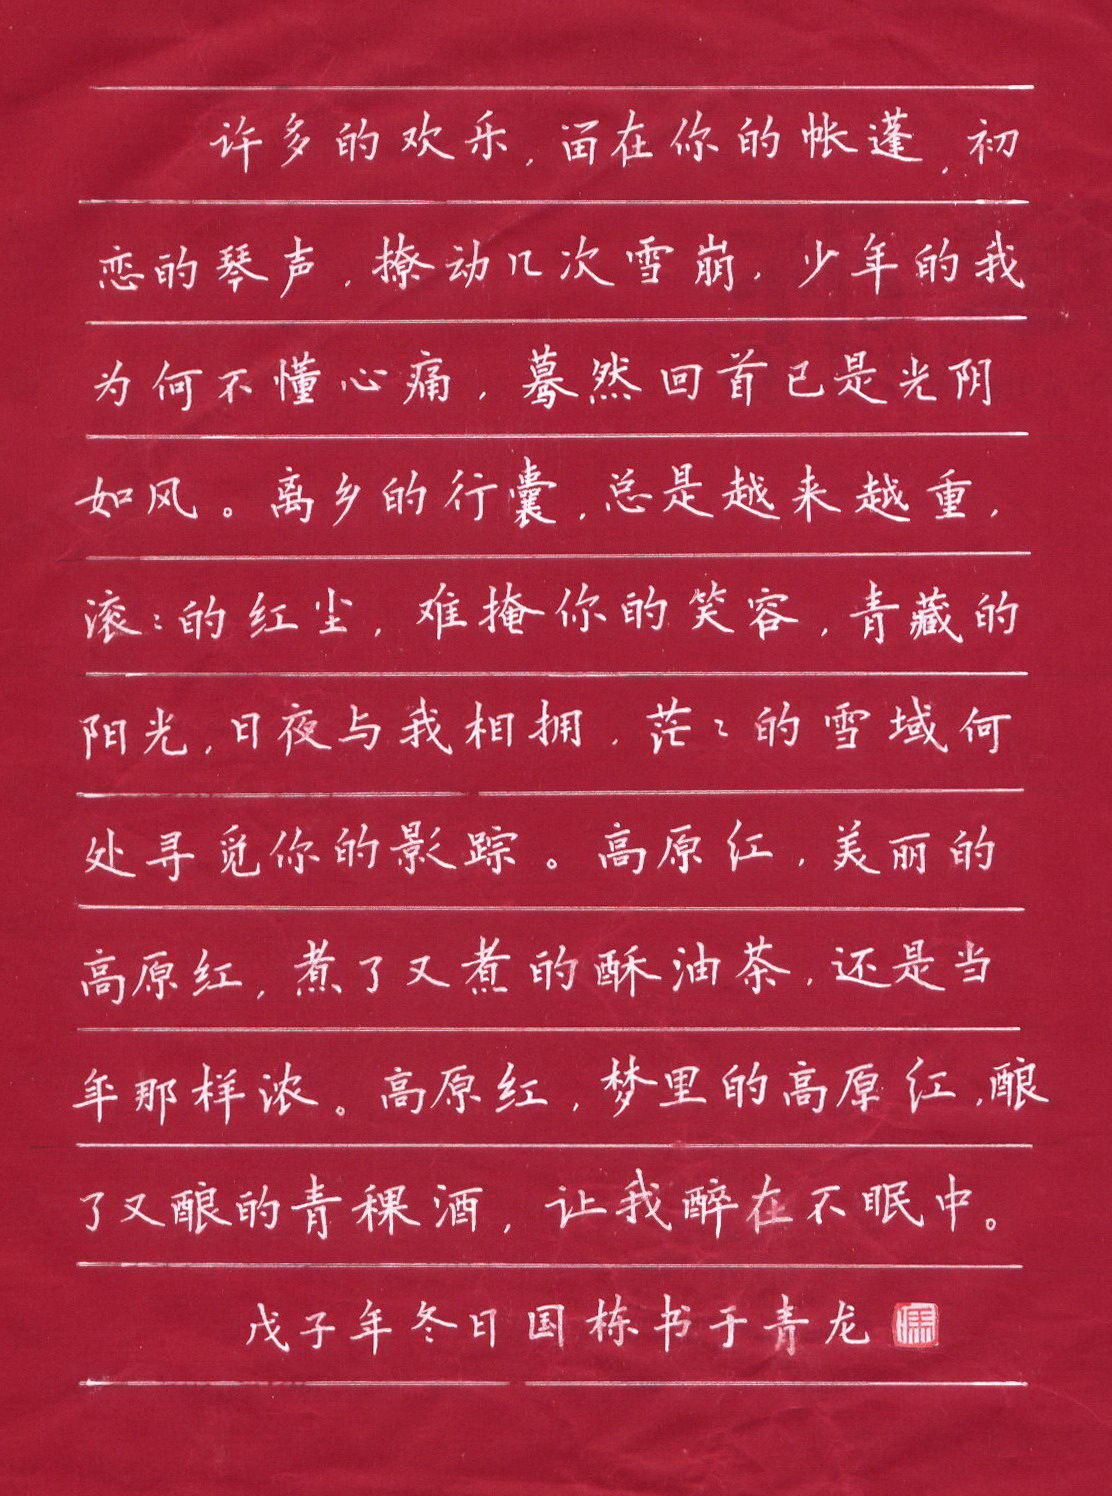 许多的欢乐,留在你的帐蓬,初
恋的琴声,撩动几次雪崩,少年的我
为何不懂心痛,蓦然回首已是光阴
如风。离乡的行囊,总是越来越重,
滚:的红尘,难掩你的笑容,青藏的
阳光,日夜与我相拥,茫々的雪域何
处寻觅你的影踪。高原红,美丽的
高原红,煮了又煮的酥油茶,还是当
年那样浓。高原红,梦里的高原红,酿
了又酿的青稞酒,让我醉在不眠中。
戊子年冬日国栋书于青龙